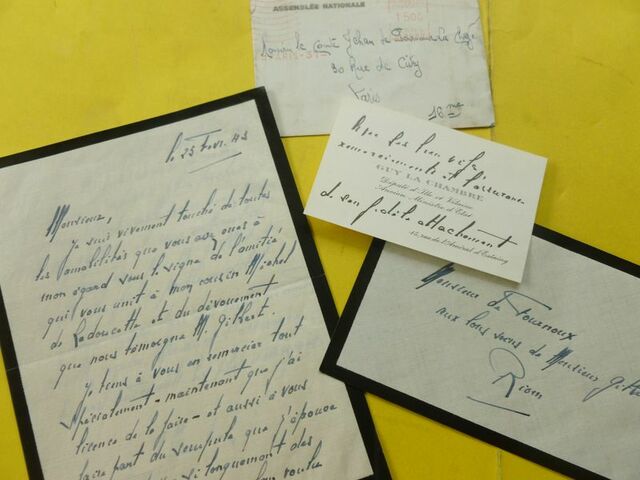 ASSEMBLÉE NATIONALE
1500
Monsieur le Comte Jehan de
30 Rue de
Paris
16 me
PARIS
le 25 Févr. 43
Monsieur,
Je suis vivement touché de toutes
les amabilités que vous avez eues à
mon égard sous le signe de l'amitié
qui vous unit à mon cousin Michel
de Ladoucette et du dévouement
que nous témoigne M. Gilbert.
Je tiens à vous en remercier tout
spécialement - maintenant que j'ai
licence de le faire - et aussi à vous
faire part du scrupule que j'éprouve
si longuement des
bien voulu
Avec ses bien vifs
remerciements et l'assurance
GUY LA CHAMBRE
Député d'Ille et Vilaine
Ancien Ministre d'Etat
de son fidèle attachement
12, rue de l'Amiral d'Estaing
Monsieur de Fournoux
aux bons soins de Monsieur
Riom